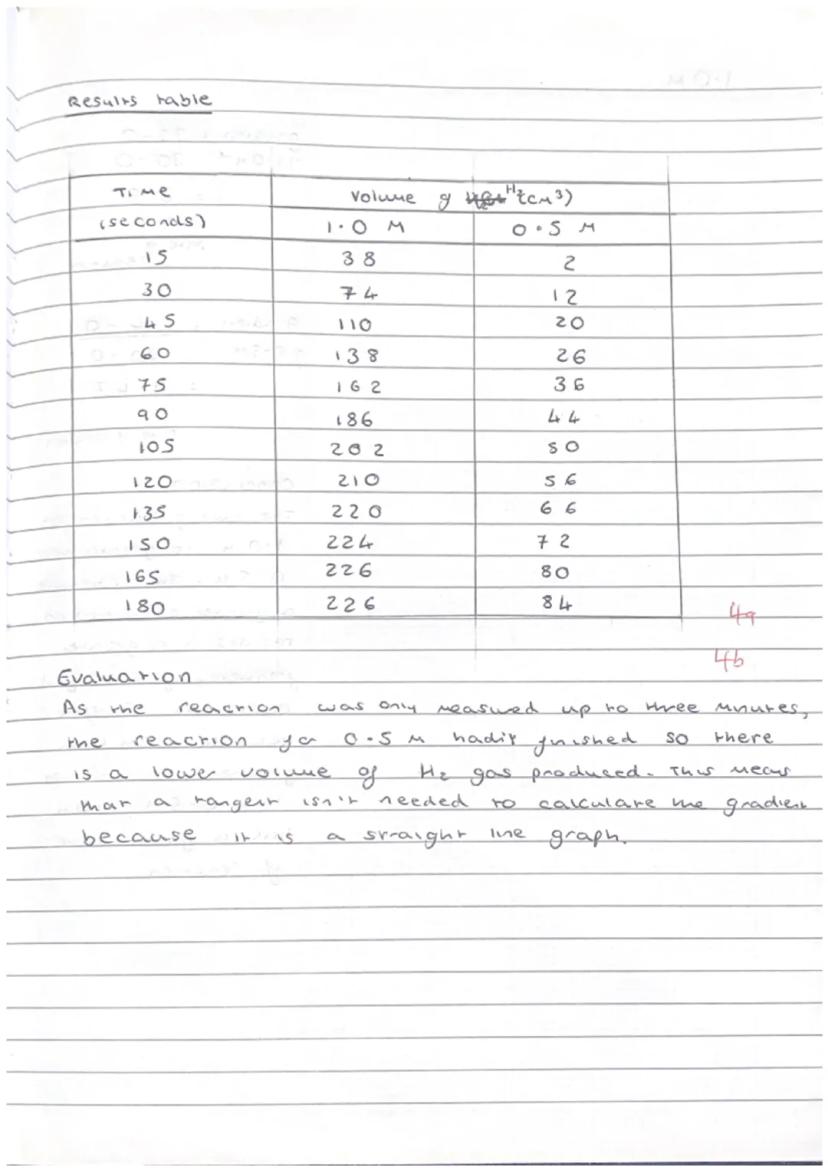 Results table
Time Volume of H₂ (cm³)
(seconds) 1.0 M 0.5 M
15 38 2
30 74 12
45 110 20
60 138 26
75 162 36
90 186 44
105 202 50
120 210 56
135 220 66
150 224 72
165 226 80
180 226 84
4a
4b
Evaluation
As the reaction was only measured up to three minutes,
the reaction for 0.5 M hadn't finished so there
is a lower volume of H₂ gas produced. This means
that a tangent isn't needed to calculate the gradient
because it is a straight line graph.